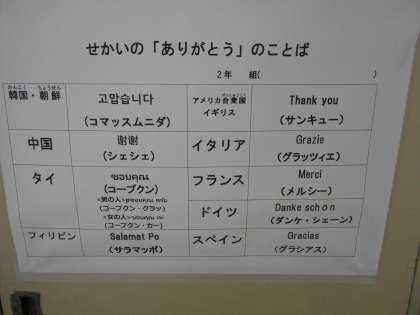 せかいの「ありがとう」のことば
2年　組(　　　　　)
かんこく　ちょうせん
韓国・朝鮮
고맙습니다
(コマッスムニダ)
アメリカ合衆国
イギリス
Thank you
(サンキュー)
中国
谢谢
(シェシェ)
イタリア
Grazie
(グラッツィエ)
タイ
ขอบคุณ
(コープクン)
<男の人>ขอบคุณ ครับ
(コープクン・クラッ)
<女の人>ขอบคุณ คะ
(コープクン・カー)
フランス
Merci
(メルシー)
ドイツ
Danke schön
(ダンケ・シェーン)
フィリピン
Salamat Po
(サラマッポ)
スペイン
Gracias
(グラシアス)